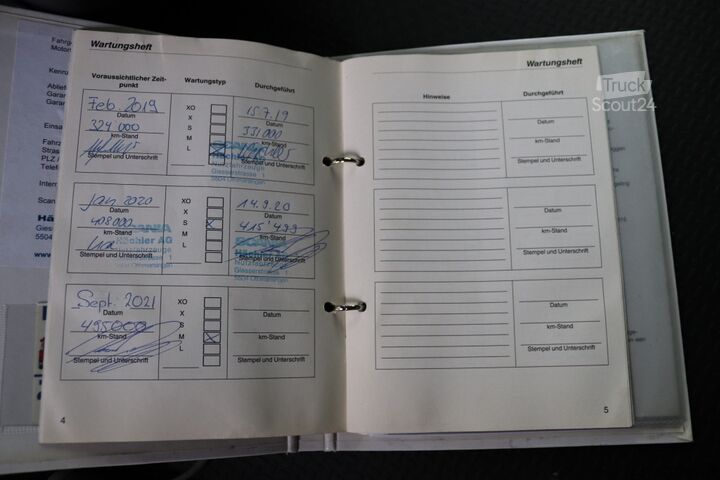 Wartungsheft
Voraussichtlicher Zeit-
punkt
Wartungstyp
Durchgeführt
Feb 2019
Datum
324 000
km-Stand
Stempel und Unterschrift
XO
X
S
M
L
15.7.19
Datum
331000
km-Stand
Stempel und Unterschrift
Giesserstrasse 1
5504 Othmarsingen
Jan 2020
Datum
408000
km-Stand
Stempel und Unterschrift
XO
X
S
M
L
SCANIA
Hächler AG
Nutzfahrzeuge
Giesserstrasse 1
5504 Othmarsingen
14.9.20
Datum
415'499
km-Stand
Stempel und Unterschrift
Giesserstrasse 1
5504 Othmarsingen
Sept. 2021
Datum
495000
km-Stand
Stempel und Unterschrift
XO
X
S
M
L
Datum
km-Stand
Stempel und Unterschrift
4
Wartungsheft
Hinweise
Durchgeführt
Datum
km-Stand
Stempel und Unterschrift
Datum
km-Stand
Stempel und Unterschrift
Datum
km-Stand
Stempel und Unterschrift
5
Truck
Scout24